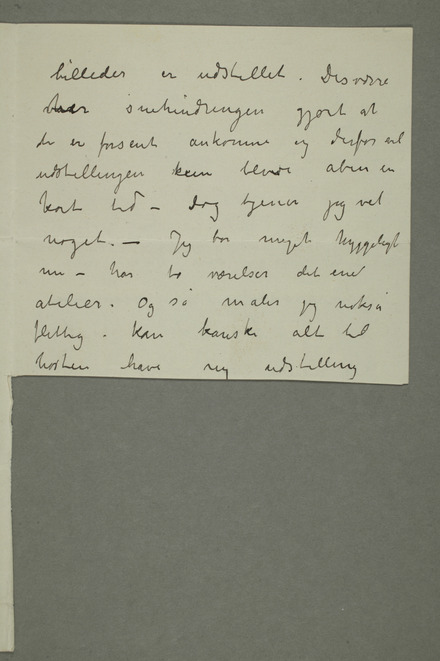 billeder er udstillet. Desværre
har snehindringen gjort at
de er forsent ankomne og derfor vil
udstillingen kun være åben en
kort tid – Dog tjener jeg vel
noget. – Jeg bor meget hyggeligt
nu – har to værelser det ene
atelier. Og så maler jeg nokså
flittig. Kan kanske alt til
høsten have ny udstilling